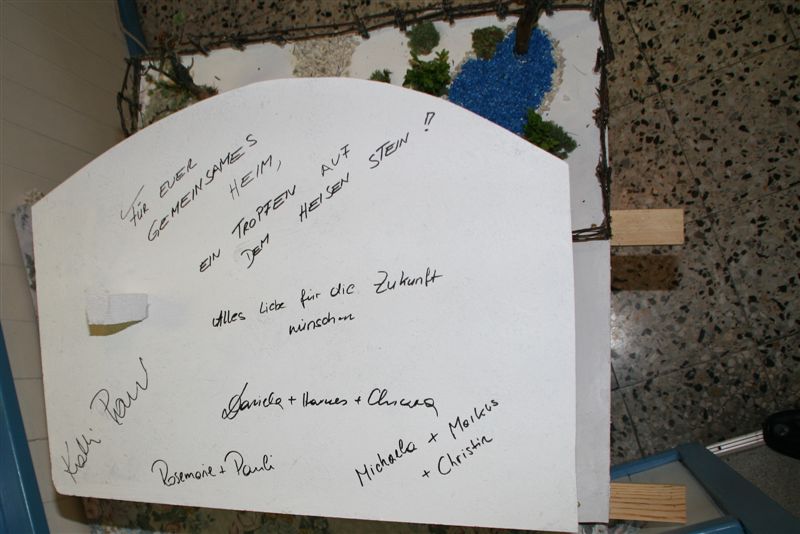 FÜR EUER
GEMEINSAMES
HEIM,
EIN TROPFEN AUF
DEM HEISEN STEIN !!
Alles Liebe für die Zukunft
wünschen
Daniela + Hannes +
Rosemarie + Pauli
Michaela + Markus
+ Christin